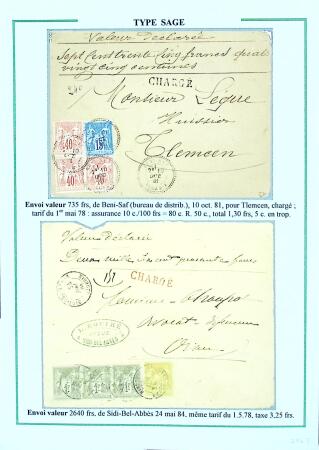 TYPE SAGE
Valeur déclarée
Sept cent trente cinq francs quatre
vingt cinq centimes
CHARGÉ
Monsieur Légue
Huissier
Tlemcen
40
15
40
Envoi valeur 735 frs, de Beni-Saf (bureau de distrib.), 10 oct. 81, pour Tlemcen, chargé ;
tarif du 1er mai 78 : assurance 10 c./100 frs = 80 c. R. 50 c., total 1,30 frs, 5 c. en trop.
Valeur déclarée
Deux mille six cent quarante francs
CHARGÉ
Monsieur
Avocat défenseur
Oran
Envoi valeur 2640 frs. de Sidi-Bel-Abbès 24 mai 84, même tarif du 1.5.78, taxe 3,25 frs.